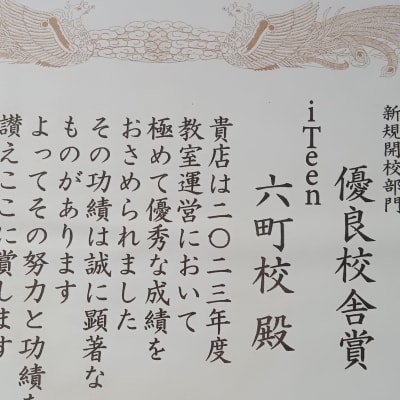 新規開校部門
優良校舎賞
iTeen
六町校 殿
貴店は二〇二三年度
教室運営において
極めて優秀な成績を
おさめられました
その功績は誠に顕著な
ものがあります
よってその努力と功績を
讃えここに賞します